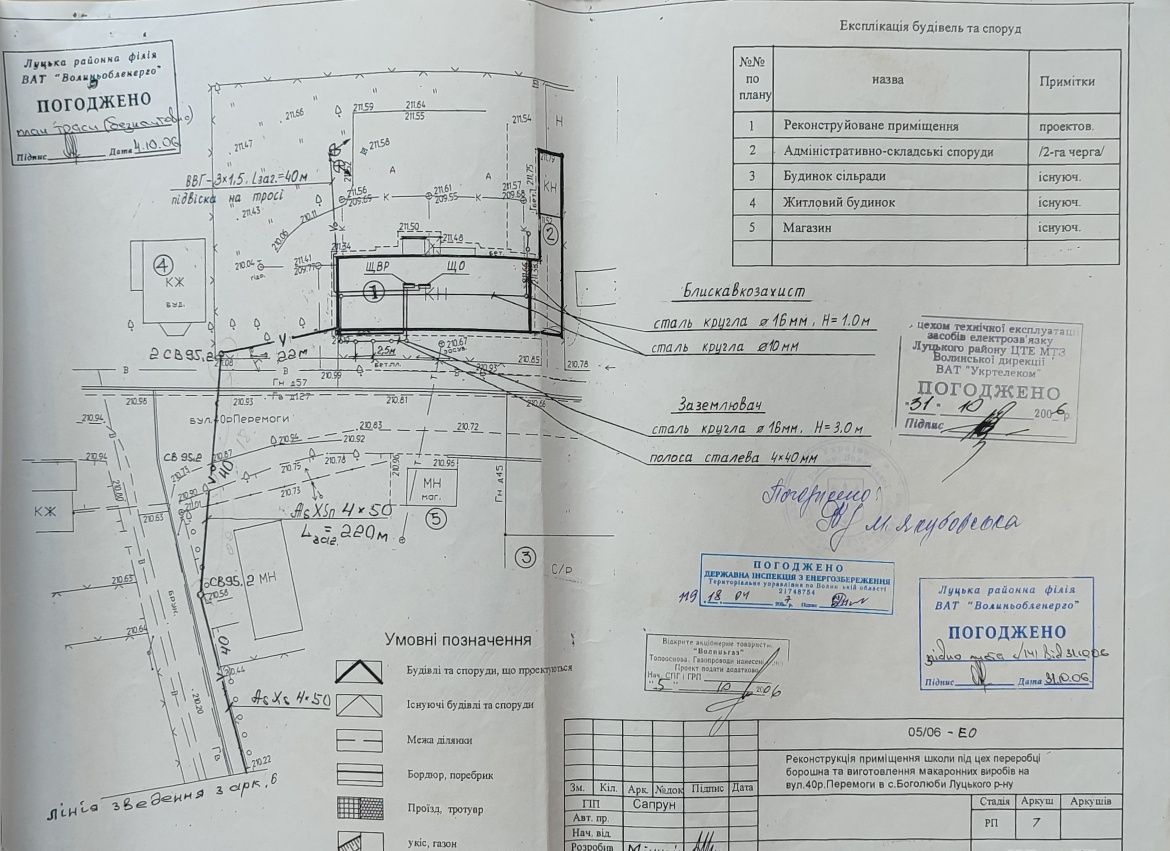 Луцька районна філія
ВАТ "Волиньобленерго"
ПОГОДЖЕНО
план траси (безкоштовно)
Підпис Дата 4.10.06
ВВГ-3×1,5. Lзаг.=40м
підвіска на тросі
211.66
211.59
211.64
211.55
211.54
211.47
211.58
211.43
211.56
209.69
211.61
209.55
211.57
209.68
211.75
211.79
КН
Н
А
А
К
К
210.11
210.06
211.50
211.48
211.34
бет.
210.04
211.41
209.77
4
КЖ
буд.
2
ЩВР
ЩО
1
КН
V
2 СВ95.2
22м
211.08
2,5м
бет.пл.
210.67
210.85
210.78
210.99
210.93
В
В
В
Гн д57
Гв д127
210.98
210.93
210.81
210.66
вул.40рПеремоги
210.94
210.83
210.72
210.94
210.92
СВ 95.2
210.87
210.75
210.78
210.94
210.96
210.95
40
210.73
210.90
211.01
МН
маг.
Гн д45
КЖ
210.80
210.63
АsXSn 4×50
Lзаг.=220м
5
3
С/р
СВ95.2
МН
210.58
210.63
210.64
брук.
40
210.44
АsХs 4×50
210.20
Гв
210.22
лінія зведення з арк. 6
Умовні позначення
Будівлі та споруди, що проектуються
Існуючі будівлі та споруди
Межа ділянки
Бордюр, поребрик
Проїзд, тротуар
укіс, газон
Експлікація будівель та споруд
№№ по плану назва Примітки
1 Реконструйоване приміщення проектов.
2 Адміністративно-складські споруди /2-га черга/
3 Будинок сільради існуюч.
4 Житловий будинок існуюч.
5 Магазин існуюч.
Блискавкозахист
сталь кругла ø16мм, Н=1.0м
сталь кругла ø10мм
Заземлювач
сталь кругла ø16мм, Н=3.0м
полоса сталева 4×40мм
цехом технічної експлуатації
засобів електрозв'язку
Луцького району ЦТЕ МТЗ
Волинської дирекції
ВАТ "Укртелеком"
ПОГОДЖЕНО
"31" 10 2006р
Підпис
Погоджено
М.Якубовська
ПОГОДЖЕНО
ДЕРЖАВНА ІНСПЕКЦІЯ З ЕНЕРГОЗБЕРЕЖЕННЯ
Територіальне управління по Волинській області
21748754
119 18 04 р. Підпис
Відкрите акціонерне товариство
"Волиньгаз"
Топооснова. Газопроводи нанесені
Проект подати додатково
Нач. СПГ і ГРП
"5" 10 2006
Луцька районна філія
ВАТ "Волиньобленерго"
ПОГОДЖЕНО
Підпис Дата 31.10.06
05/06 - ЕО
Реконструкція приміщення школи під цех переробці
борошна та виготовлення макаронних виробів на
вул.40р.Перемоги в с.Боголюби Луцького р-ну
Зм. Кіл. Арк. №док Підпис Дата
ГІП Сапрун
Авт. пр.
Нач. від.
Розробив
Стадія Аркуш Аркушів
РП 7